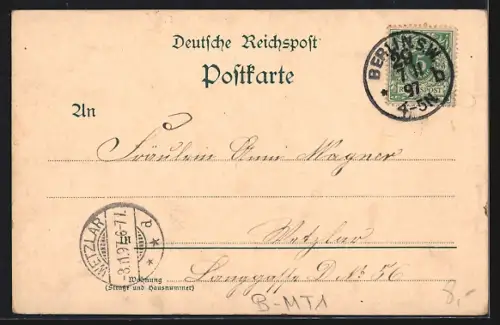 Deutsche Reichspost
Postkarte
BERLIN S.W.
29
7 11
97
4-5N
b
An
Fräulein Anni Wagner
WETZLAR
-8.11.97.6-7
Wetzlar
in
Wohnung
(Straße und Hausnummer)
Langgasse D. № 56
B-MT1
8,-